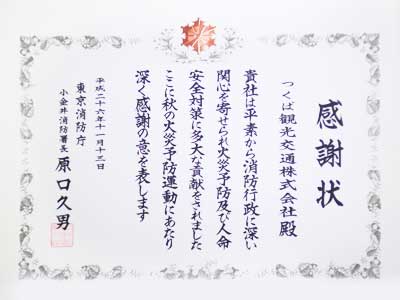 感謝状
つくば観光交通株式会社殿
貴社は平素から消防行政に深い
関心を寄せられ火災予防及び人命
安全対策に多大な貢献をされました
ここに秋の火災予防運動にあたり
深く感謝の意を表します
平成二十六年十一月十三日
東京消防庁
小金井消防署長 原口久男